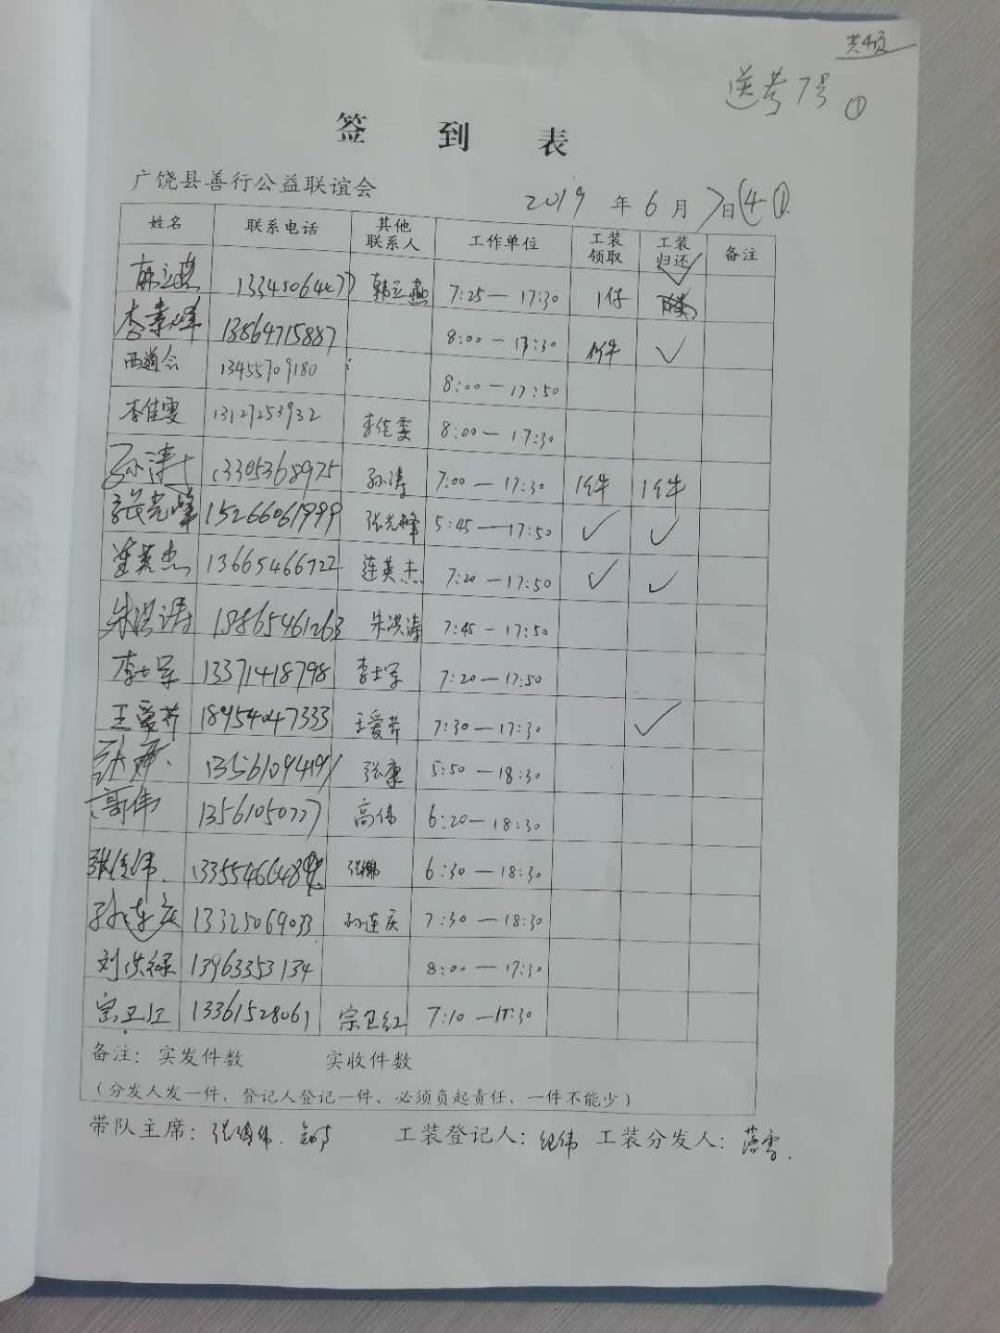 共4页
送考7号 ①
签到表
广饶县善行公益联谊会 2019年6月7日(4-①
姓名 联系电话 其他联系人 工作单位 工装领取 工装归还 备注
韩立燕 韩立燕 7:25—17:30 1件
李素峰 13864715887 8:00—17:30 ✓
13455709180 8:00—17:50
李佳雯 13127253932 李佳雯 8:00—17:30
孙涛 13305368975 孙涛 7:00—17:30 1件 1件
张光峰 15266061999 张光峰 5:45—17:50 ✓ ✓
13665466722 7:20—17:50 ✓ ✓
朱洪涛 18865461263 朱洪涛 7:45-17:50
李士军 13371418798 李士军 7:20—17:50
王爱芹 18954047333 王爱芹 7:30—17:30 ✓
张康 张康 5:50—18:30
高伟 13561050727 高伟 6:20—18:30
6:30—18:30
孙连庆 13325069033 孙连庆 7:30—18:30
刘洪绿 13963353134 8:00—17:30
宗卫红 13361528061 宗卫红 7:10—17:30
备注：实发件数 实收件数
（分发人发一件、登记人登记一件、必须负起责任、一件不能少）
带队主席： 工装登记人： 工装分发人：